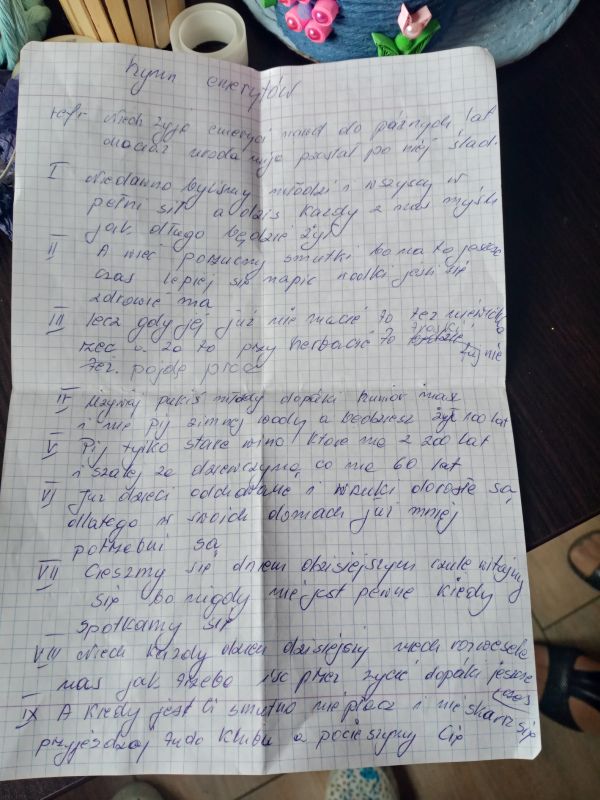 hymn emerytów
refr Niech żyją emeryci nawet do późnych lat
chociaż uroda mija pozostał po niej ślad.
I Niedawno byliśmy młodzi i wszyscy w
pełni sił a dziś każdy z nas myśli
jak długo będzie żył
II A więc porzućmy smutki bo na to jeszcze
czas lepiej się napić wódki jeśli się
zdrowie ma
III lecz gdy jej już nie macie to też niewielka
rzec a za to przy herbacie to troski
też. pójdą precz
IV Używaj pukiś młody dopóki humor masz
i nie pij zimnej wody a będziesz żył 100 lat
V Pij tylko stare wino które ma 2 200 lat
i szalej za dziewczyną co ma 60 lat
VI Już dzieci odchowane i wnuki dorosłe są
dlatego w swoich domach już mniej
potrzebni są
VII Cieszmy się dniem dzisiejszym czule witajmy
się bo nigdy nie jest pewne kiedy
spotkamy się
VIII Niech każdy dzień dzisiejszy niech rozwesela
nas jak trzeba iść przez życie dopóki jeszcze
czas
IX A kiedy jest Ci smutno nie płacz i nie skarż się
przyjeżdżaj tu do klubu a pocieszymy Cię